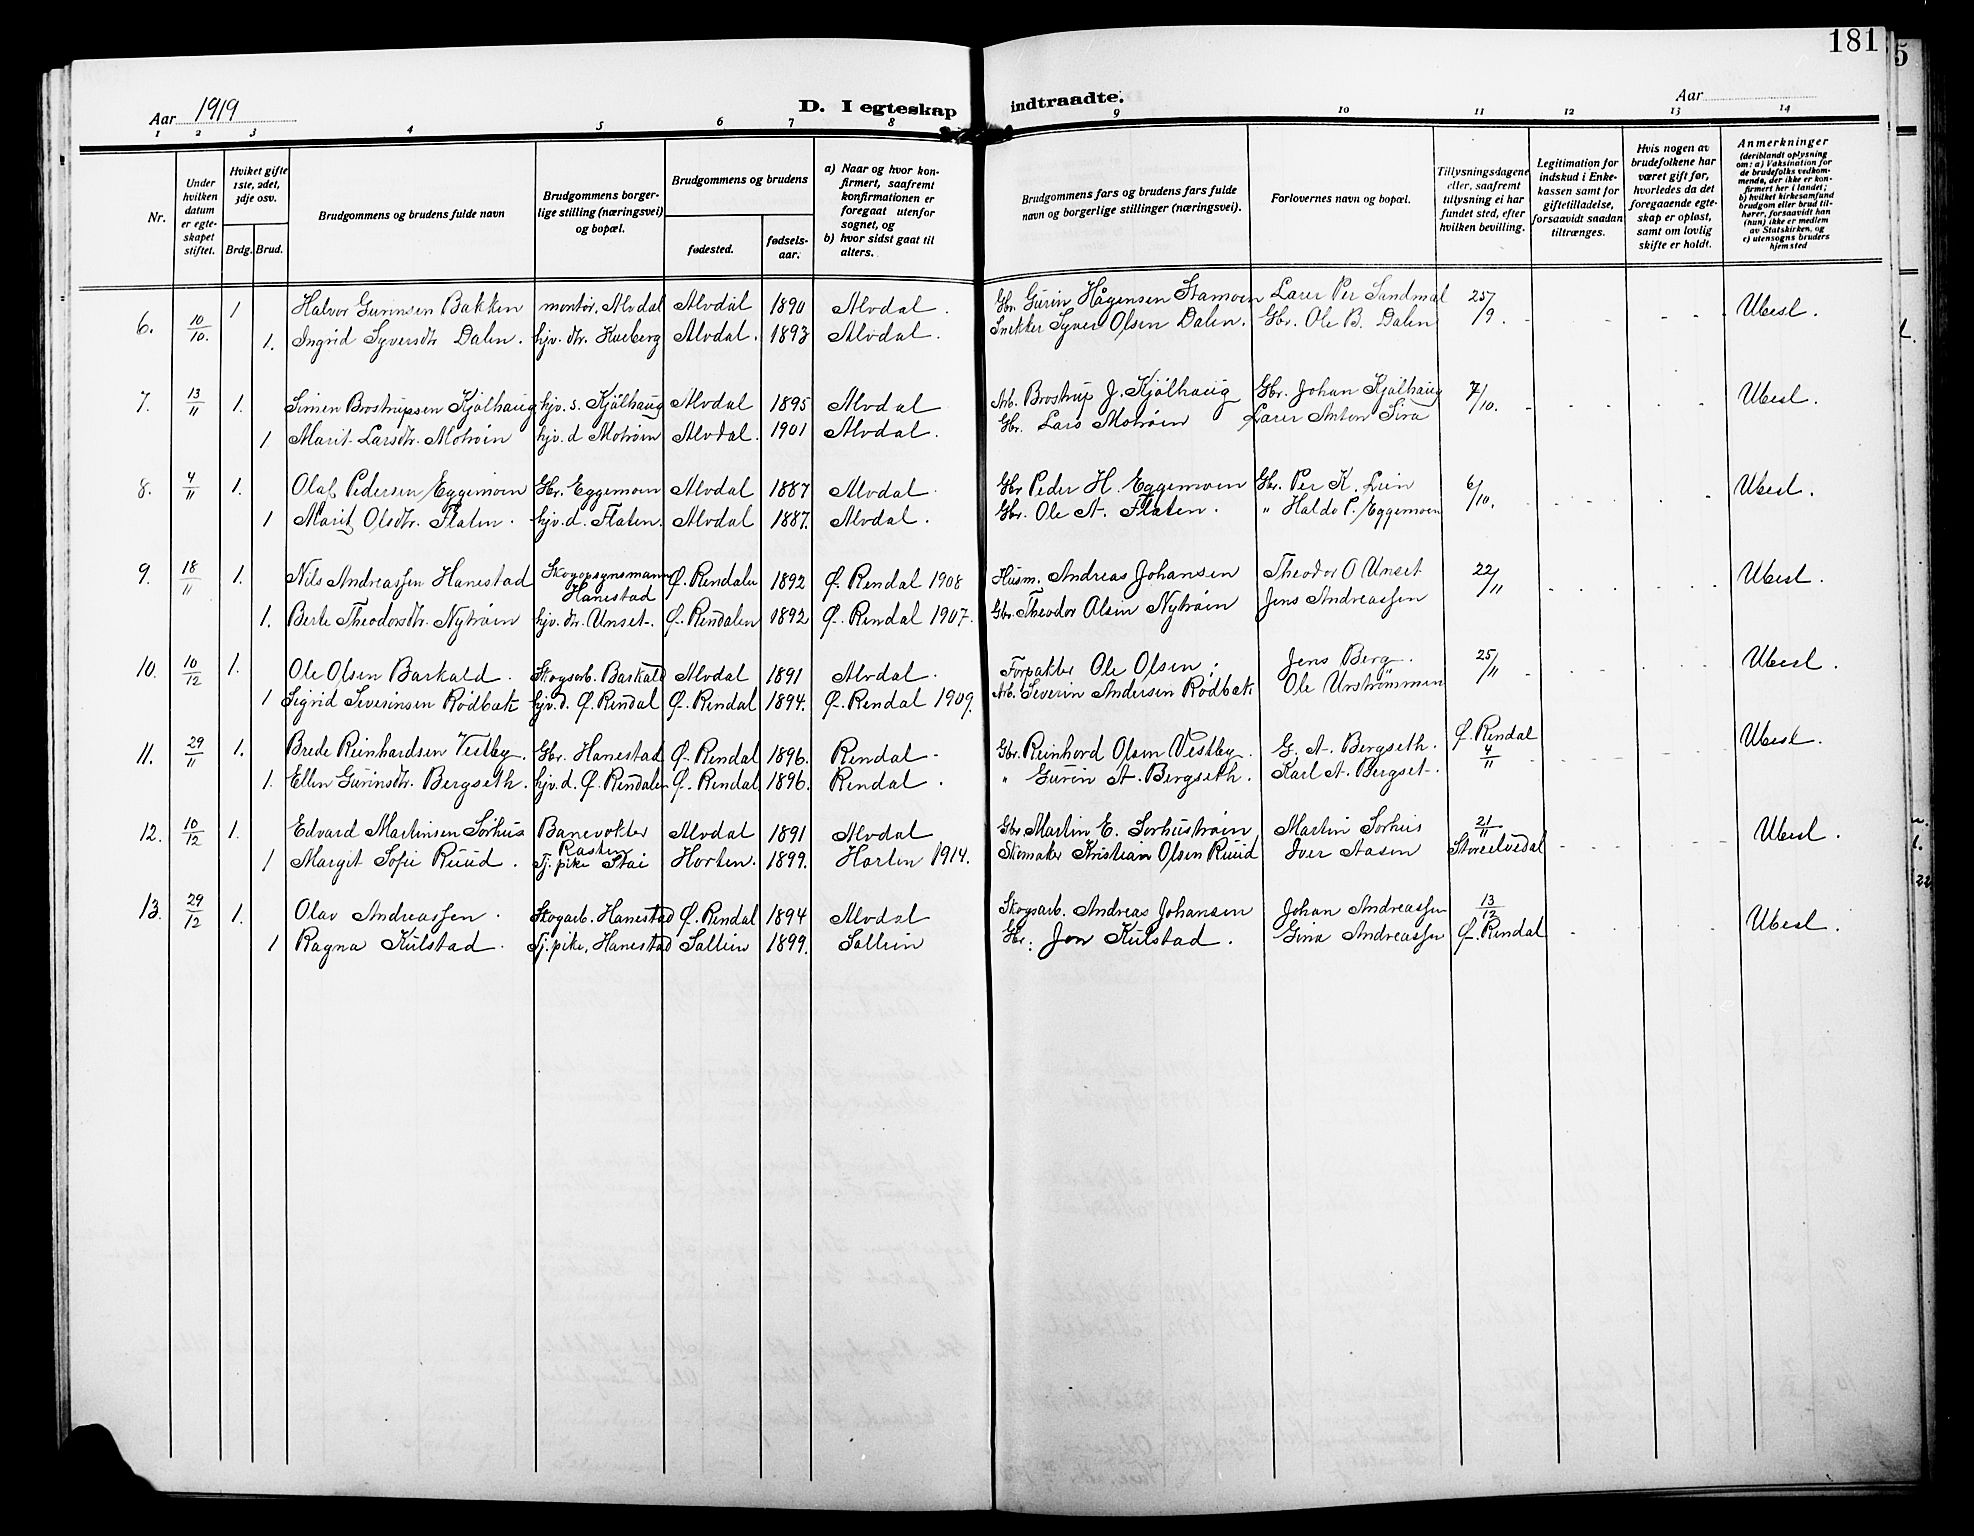 181
5
Aar 1919
D. I egteskap indtraadte.
Aar
1 2 3 4 5 6 7 8 9 10 11 12 13 14
Nr.
Under hvilken datum er egteskapet stiftet.
Hviket gifte 1ste, 2det, 3dje osv.
Brdg. Brud.
Brudgommens og brudens fulde navn
Brudgommens borgerlige stilling (næringsvei) og bopæl.
Brudgommens og brudens
fødested.
fødselsaar.
a) Naar og hvor konfirmert, saafremt konfirmationen er foregaat utenfor sognet, og
b) hvor sidst gaat til alters.
Brudgommens fars og brudens fars fulde navn og borgerlige stillinger (næringsvei).
Forlovernes navn og bopæl.
Tillysningsdagene eller, saafremt tillysning ei har fundet sted, efter hvilken bevilling.
Legitimation for indskud i Enkekassen samt for giftetilladelse, forsaavidt saadan tiltrænges.
Hvis nogen av brudefolkene har været gift før, hvorledes da det foregaaende egteskap er opløst, samt om lovlig skifte er holdt.
Anmerkninger (deriblandt oplysning om: a) Vaksination for de brudefolks vedkommende, der ikke er konfirmert her i landet; b) hvilket kirkesamfund brudgom eller brud tilhører, forsaavidt han (hun) ikke er medlem av Statskirken, og c) utensogns bruders hjemsted
6. 10/10. 1 Halvor Gunnsen Bakken montør, Alvdal Alvdal 1890 Alvdal. Gbr. Gunn Hågensen Stamoen Lærer Per Sandmæl 25/9. Ubesl.
1. Ingrid Syversdtr Dalen. hjv. dtr. Hueberg Alvdal. 1893 Alvdal. Snekker Syver Olsen Dalen. Gbr. Ole B. Dalen
7. 13/11 1. Simen Brostrupsen Kjølhaug hjv. s. Kjølhaug Alvdal 1895 Alvdal Arb. Brostrup J. Kjølhaug Gbr. Johan Kjølhaug 7/10. Ubesl.
1 Marit Larsdtr. Motrøen hjv. d Motrøen Alvdal. 1901 Alvdal. Gbr. Lars Motrøen Lærer Anton Sira
8. 4/11 1. Olaf Pedersen Eggemoen Gbr. Eggemoen Alvdal 1887 Alvdal. Gbr Peder H. Eggemoen Gbr. Per K. Lien 6/10. Ubesl.
1 Marit Olsdtr. Flaten. hjv. d. Flaten. Alvdal 1887. Alvdal. Gbr. Ole A. Flaten. " Haldo P. Eggemoen
9. 18/11 1. Nils Andreassen Hanestad Skogopsynsmann Hanestad Ø. Rendalen 1892 Ø. Rendal 1908 Husm. Andreas Johansen Theodor O Unset 22/11 Ubesl.
1. Berte Theodorsdtr. Nytrøen hjv. dtr. Unset. Ø. Rendalen 1892 Ø. Rendal 1907. Gbr. Theodor Olsen Nytrøen Jens Andreassen
10. 10/12 1. Ole Olsen Barkald. Skogsarb. Barkald Alvdal 1891 Alvdal. Forpakter Ole Olsen. Jens Berg. 25/11 Ubesl.
1 Sigrid Severinsen Rødbæk hjv. d. Ø. Rendal Ø. Rendal 1894. Ø. Rendal 1909. Arb. Severin Andersen Rødbæk Ole Urstrømmen
11. 29/11 1. Brede Reinhardsen Vestby. Gbr. Hanestad Ø. Rendal 1896. Rendal Gbr. Reinhord Olsen Vestby. G. A. Bergseth. Ø. Rendal 4/11 Ubesl.
1. Ellen Gunnsdtr. Bergseth. hjv. d. Ø. Rendalen Ø. Rendal 1896. Rendal. " Gunn A. Bergseth. Karl A. Bergset.
12. 10/12 1. Edvard Martinsen Sørhus Banevokter Rasten Alvdal 1891 Alvdal Gbr Martin E. Sørhustrøen Martin Sørhus 21/11 Ubesl.
1 Margit Sofie Ruud. Tj. pike Stai Horten. 1899. Horten 1914. Skomaker Kristian Olsen Ruud Iver Aasen Storelvedal
13. 29/12 1. Olav Andreassen. Skogarb. Hanestad Ø. Rendal 1894 Alvdal Skogsarb. Andreas Johansen Johan Andreassen 13/12 Ubesl.
1 Ragna Kulstad. Tj. pike, Hanestad Sollien 1899. Sollien Gbr. Jon Kulstad. Gina Andreassen Ø. Rendal